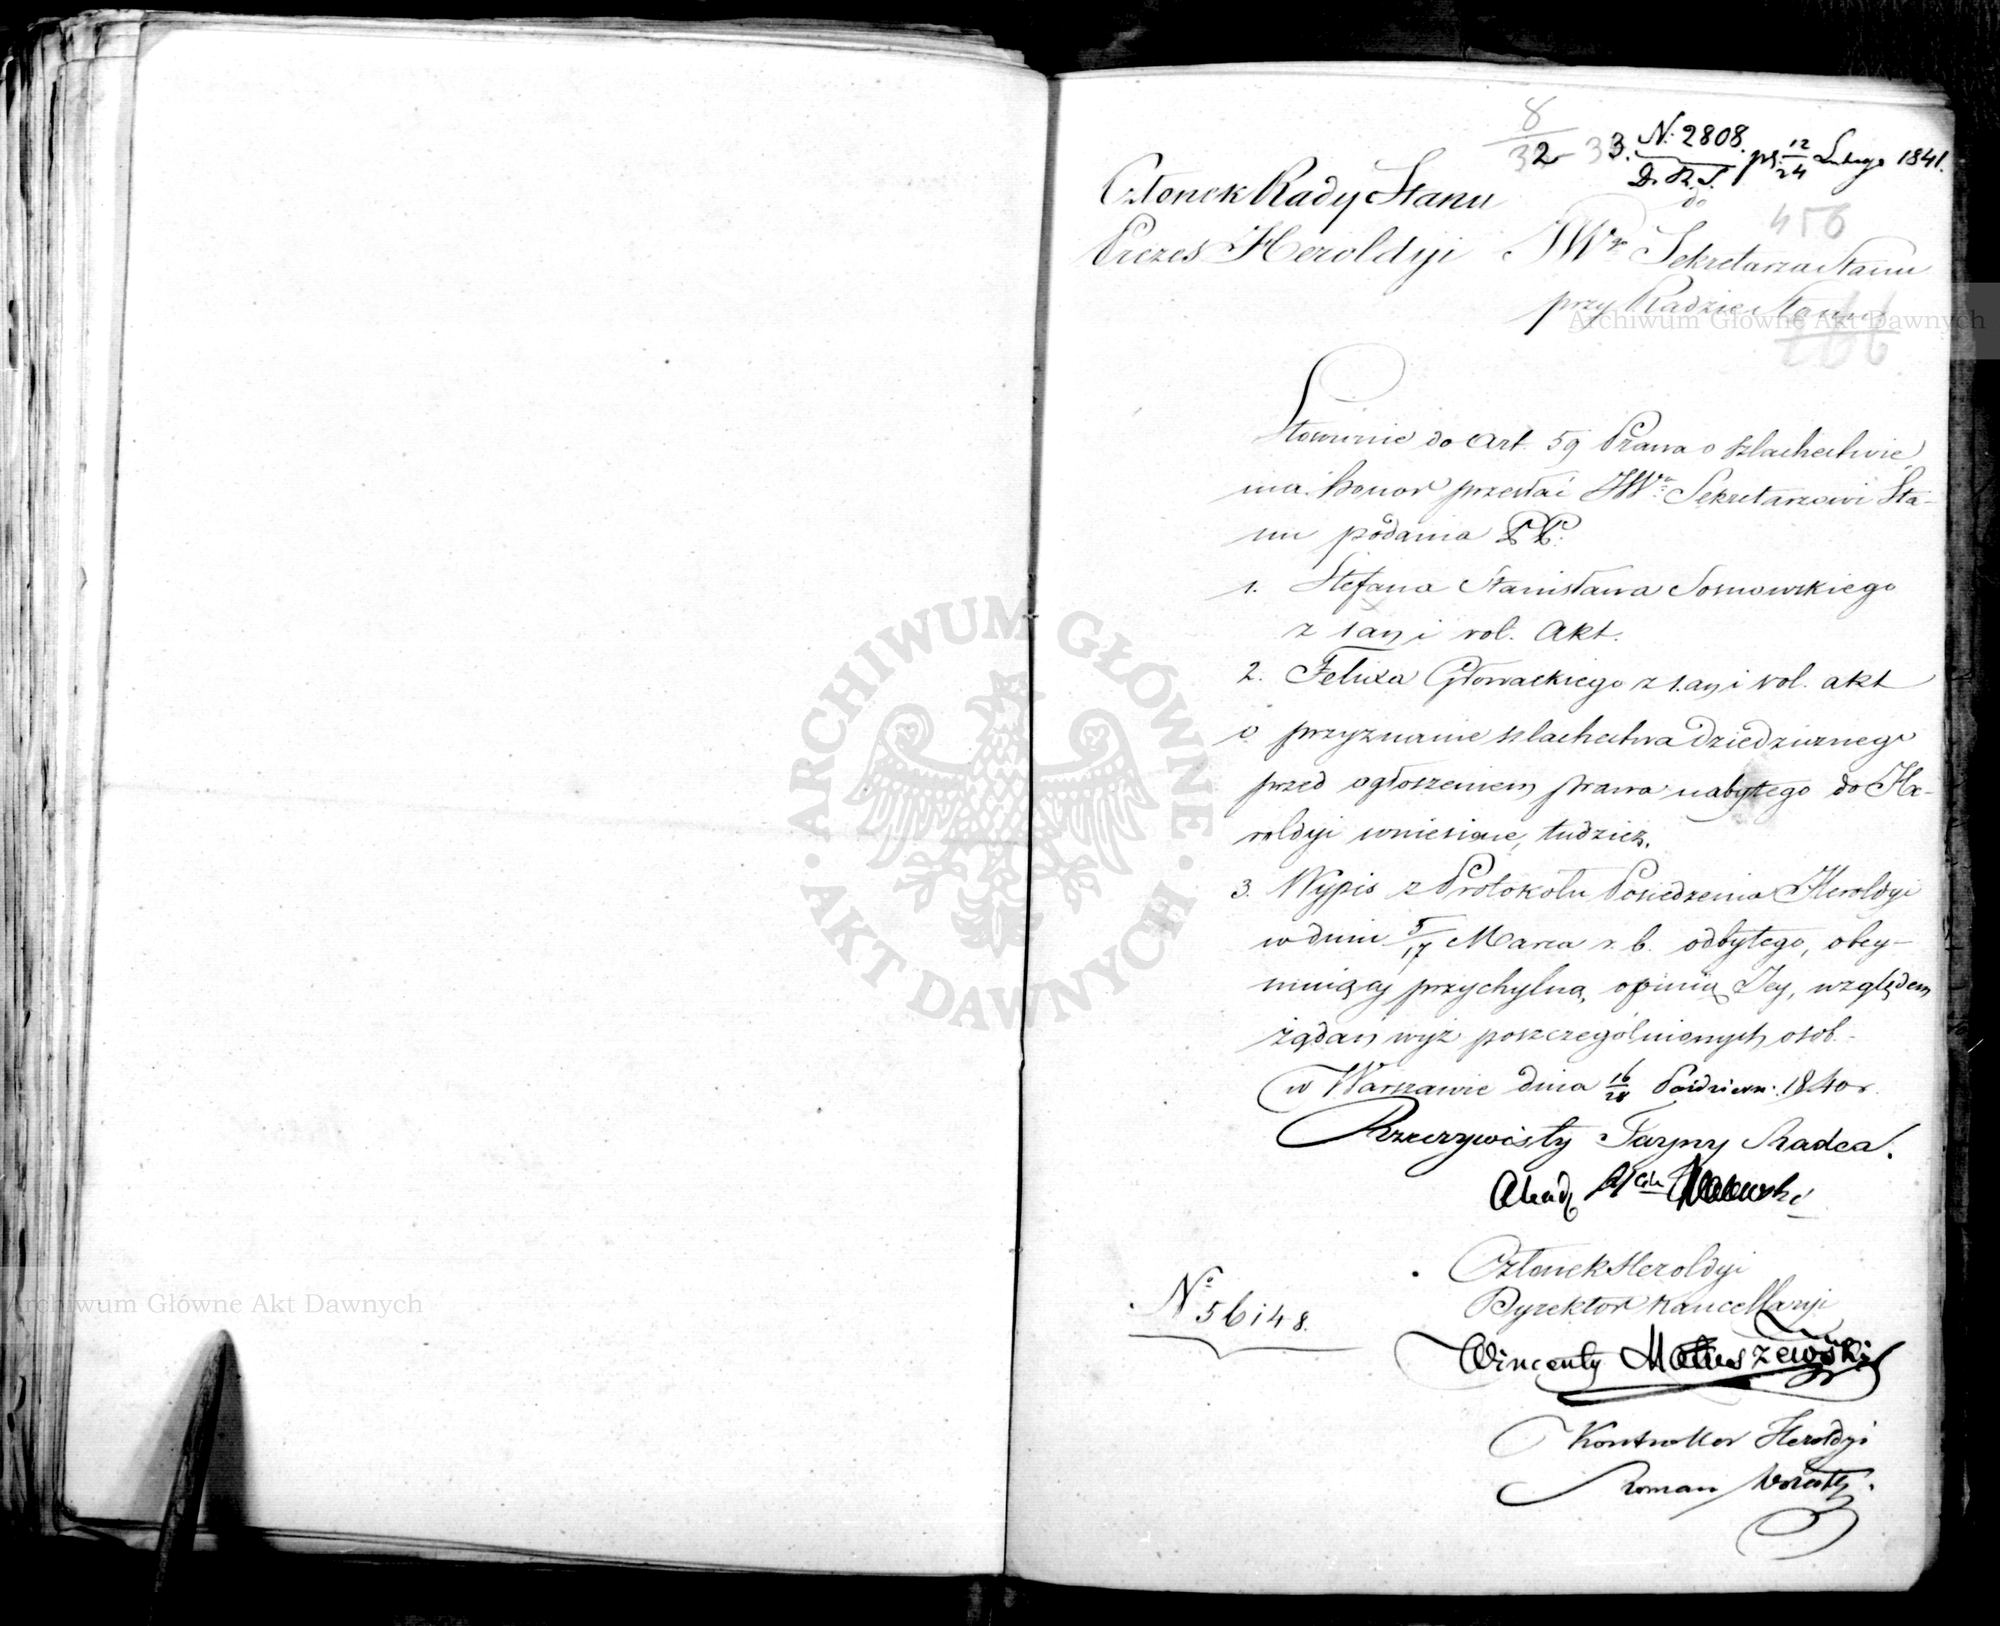 8
32 33.
N. 2808. pr. 12/24 Lutego 1841.
D. R. S.
Członek Rady Stanu
Prezes Heroldyi
do
456
JWo Sekretarza Stanu
przy Radzie Stanu
266
Stosownie do Art. 59 Prawa o szlachectwie
ma honor przesłać JWu Sekretarzowi Sta-
nu podania PP.
1. Stefana Stanisława Sosnowskiego
z 1 an i vol. Akt.
2. Felixa Głowackiego z 1. an i vol. akt
o przyznanie szlachectwa dziedzicznego
przed ogłoszeniem prawa nabytego do He-
roldyi wniesione, tudzież.
3. Wypis z Protokołu Posiedzenia Heroldyi
w dniu 5/17 Marca r. b. odbytego, obey-
muiący przychylną opinią Jey, względem
żądań wyż poszczególnionych osob.-
w Warszawie dnia 16/28 Paździer: 1840 r.
Rzeczywisty Tayny Radca.
Członek Heroldyi
Dyrektor Kancellaryi
No 56148.
Wincenty Matuszewski
Kontroller Heroldyi
Roman
Archiwum Główne Akt Dawnych
Archiwum Główne Akt Dawnych
ARCHIWUM GŁÓWNE AKT DAWNYCH